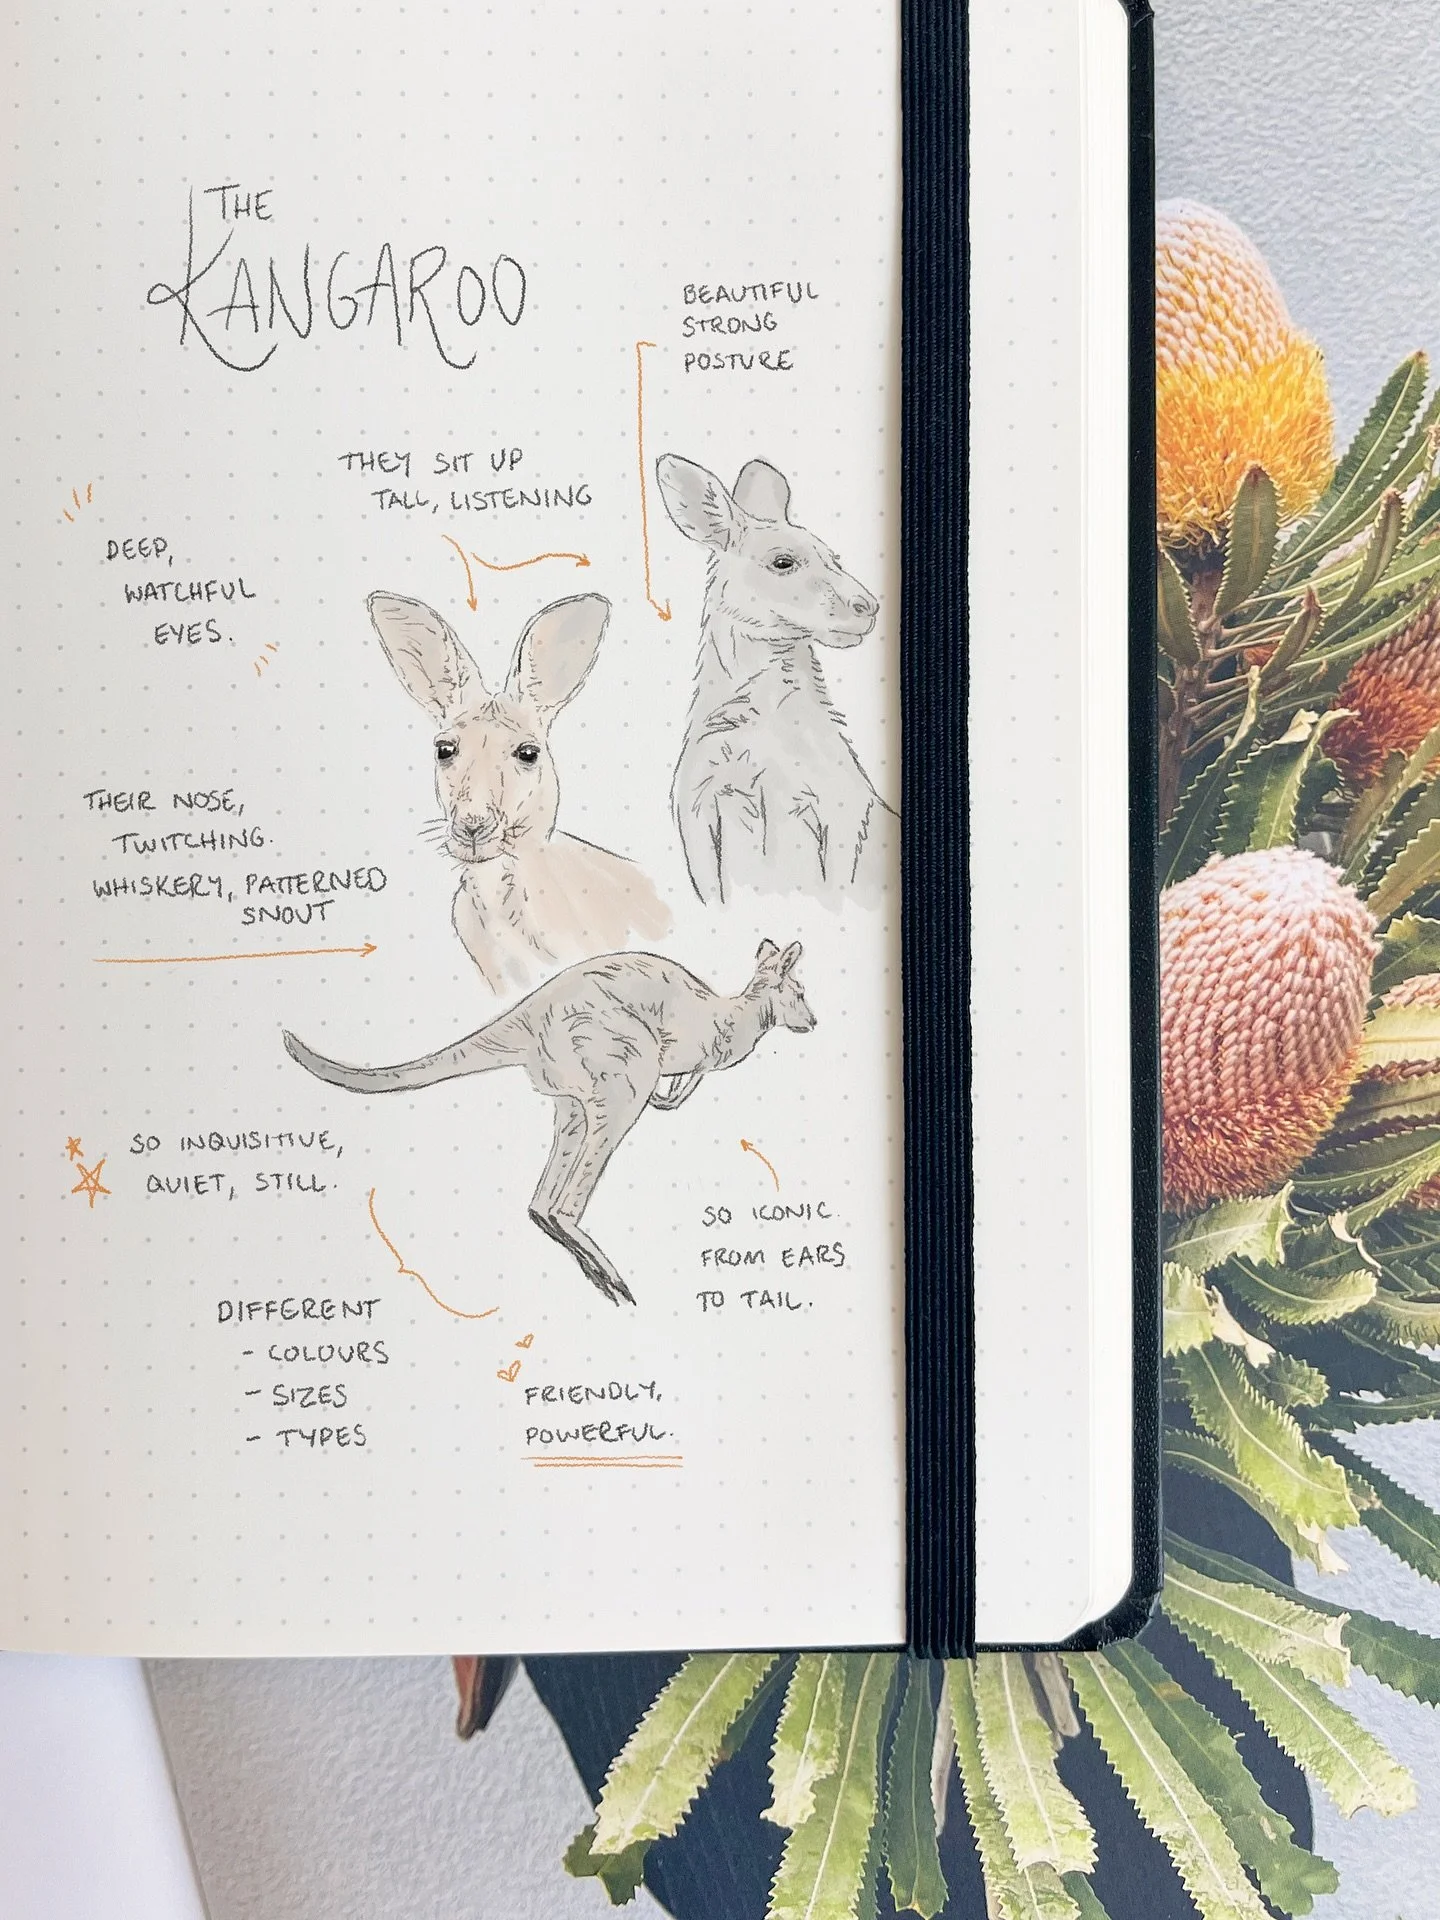 THE
KANGAROO
BEAUTIFUL
STRONG
POSTURE
THEY SIT UP
TALL, LISTENING
DEEP,
WATCHFUL
EYES.
THEIR NOSE,
TWITCHING.
WHISKERY, PATTERNED
SNOUT
SO INQUISITIVE,
QUIET, STILL.
SO ICONIC.
FROM EARS
TO TAIL.
DIFFERENT
- COLOURS
- SIZES
- TYPES
FRIENDLY,
POWERFUL.